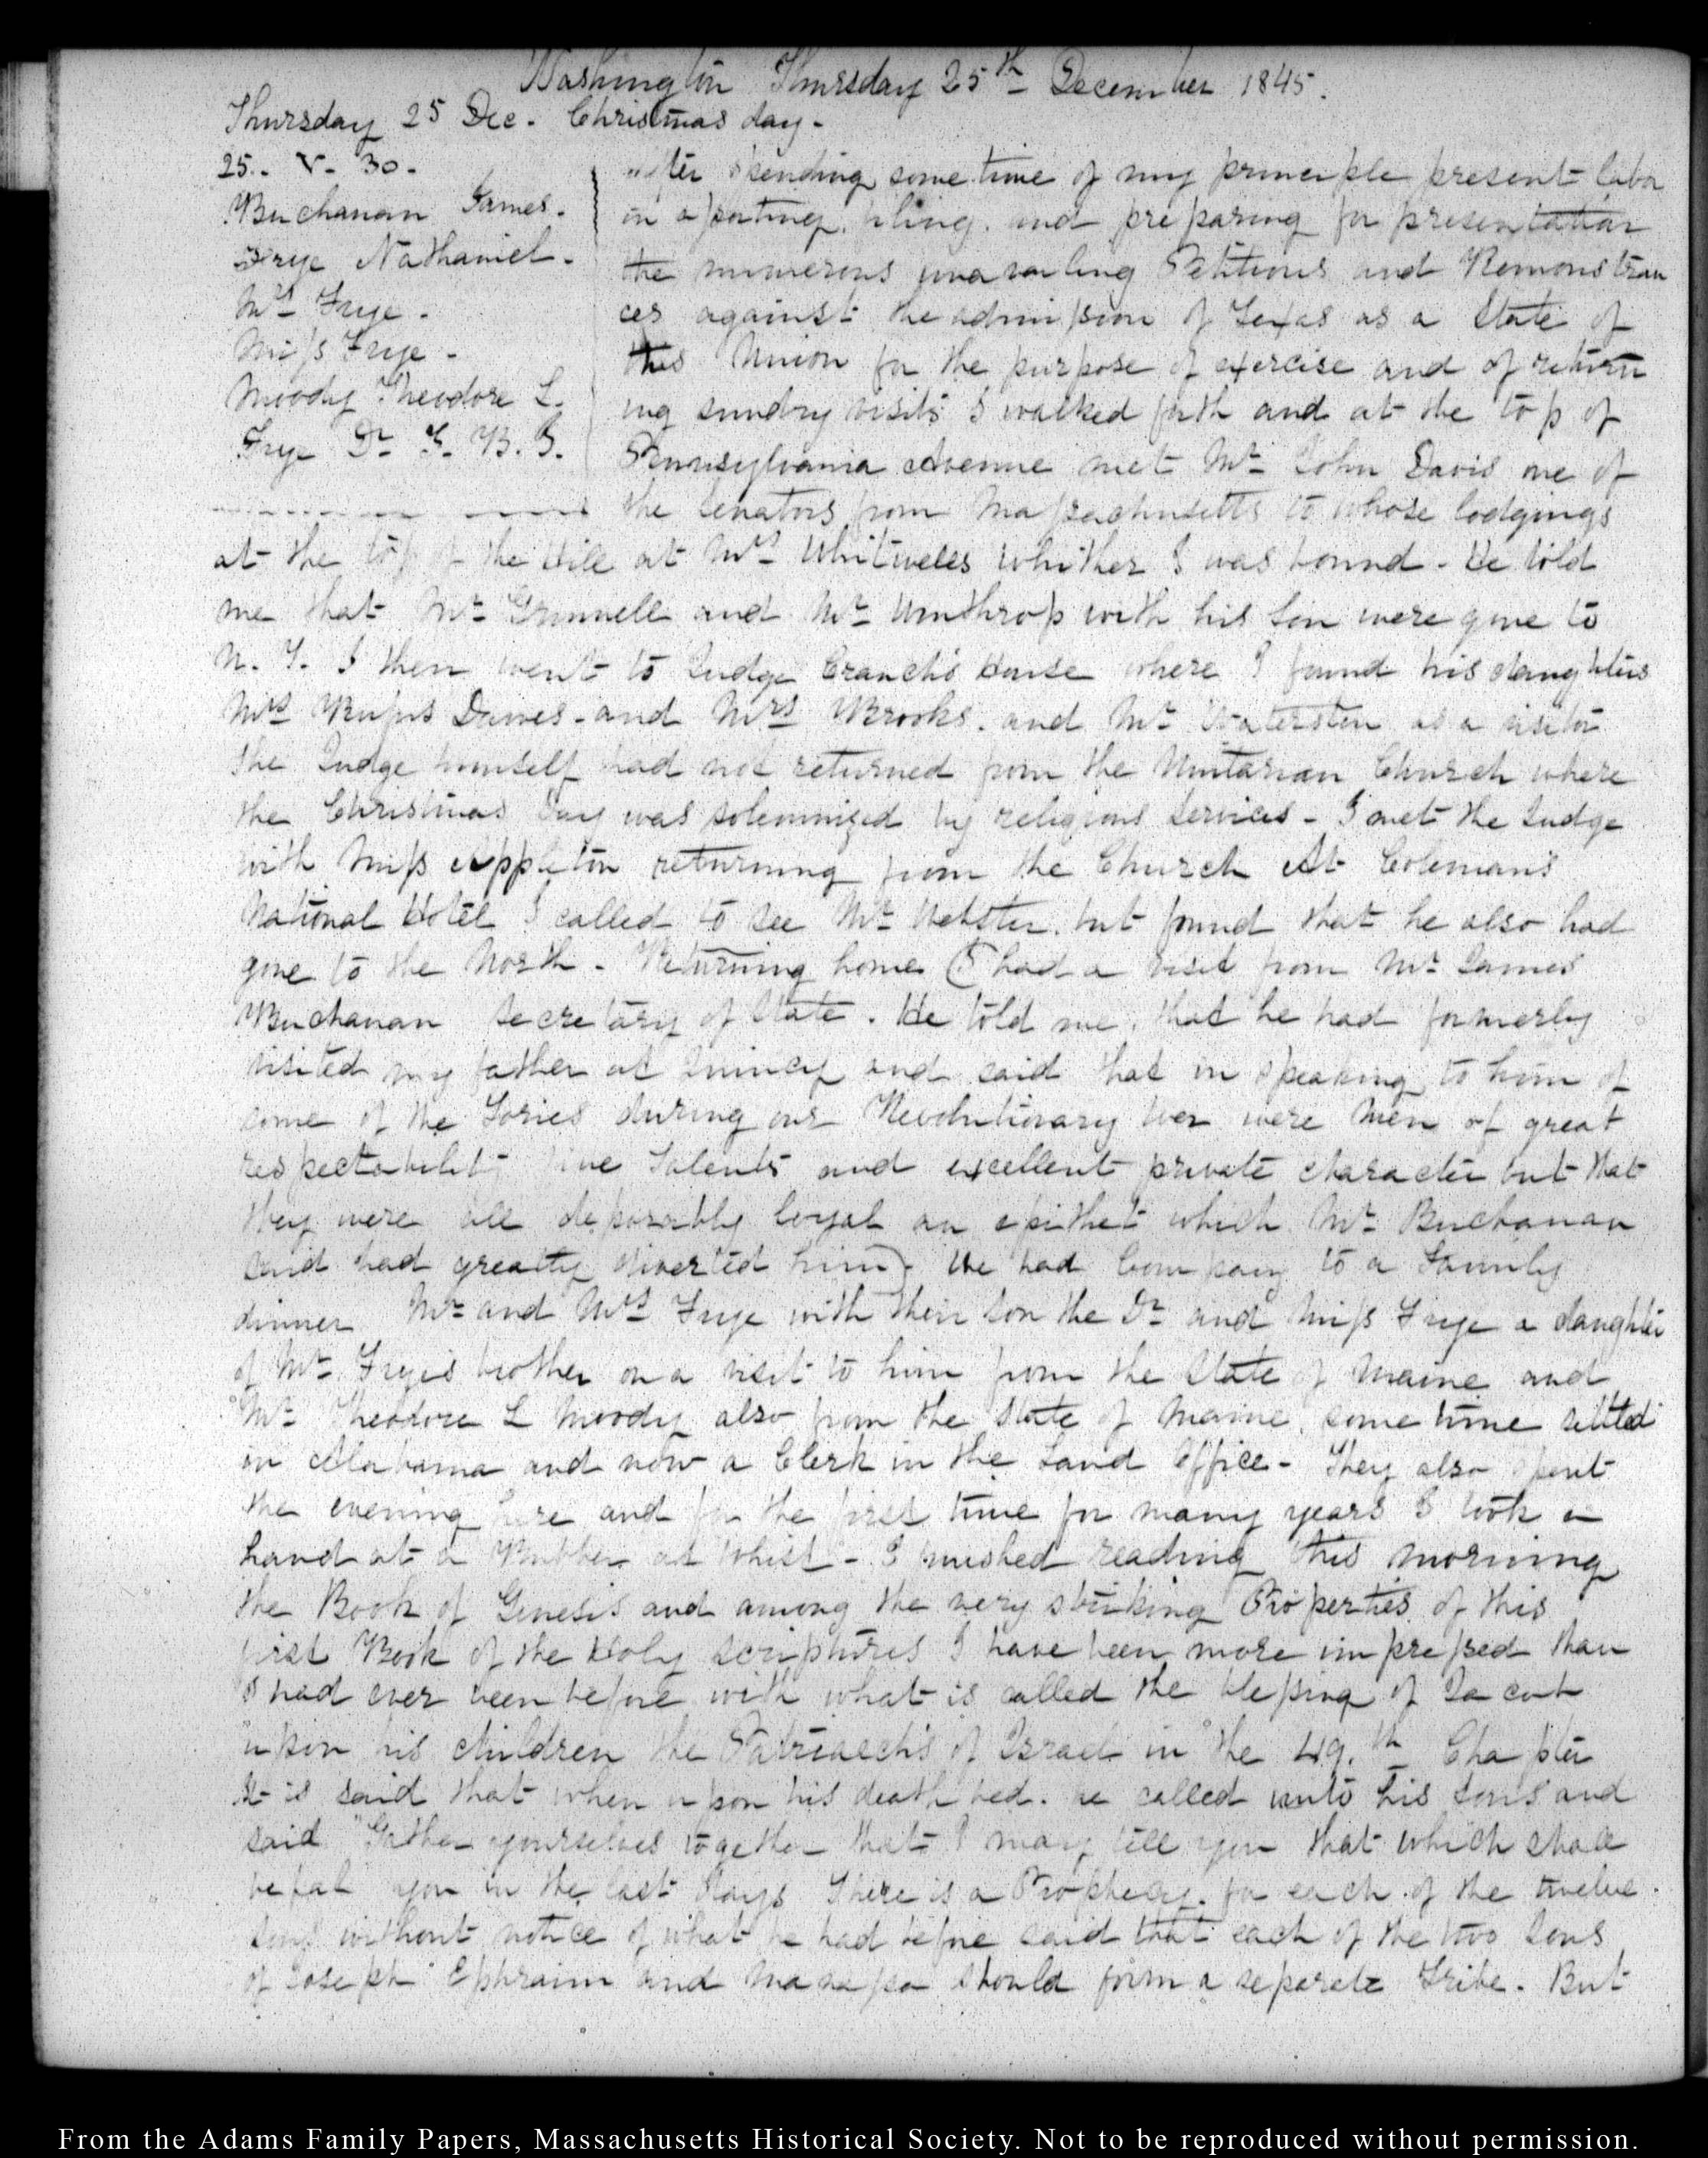 Washington Thursday 25th December 1845.
Thursday 25 Dec. Christmas day.
25. V. 30.
Buchanan James.
Frye Nathaniel.
Mrs Frye.
Miss Frye.
Moody Theodore L.
Frye Dr T. B. J.
After spending some time of my principle present labo
in assorting, filing, and preparing for presentation
the numerous unavailing Petitions and Remonstran
ces against the admission of Texas as a State of
this Union for the purpose of exercise and of return
ing sundry visits I walked forth and at the top of
Pennsylvania Avenue met Mr John Davis one of
the Senators from Massachusetts to whose lodgings
at the top of the Hill at Mrs Whitwells whither I was bound. He told
me that Mr Grinnell and Mr Winthrop with his Son were gone to
N. Y. I then went to Judge Cranch's House where I found his daughters
Mrs Rufus Dawes and Mrs Brooks. and Mr Waterston as a visitor
the Judge himself had not returned from the Unitarian Church where
the Christmas Day was solemnized by religious Services - I met the Judge
with Miss Appleton returning from the Church At Coleman's
National Hotel I called to see Mr Webster. but found that he also had
gone to the North. Returning home (I had a visit from Mr James
Buchanan Secretary of State. He told me, that he had formerly
visited my father at Quincy and said that in speaking to him of
some of the Tories during our Revolutionary War were Men of great
respectability fine Talents and excellent private character but that
they were all deplorably loyal an epithet which Mr Buchanan
said had greatly diverted him). We had Company to a Family
dinner Mr and Mrs Frye with their Son the Dr and Miss Frye a daughter
of Mr Frye's brother on a visit to him from the State of Maine and
Mr Theodore L Moody also from the State of Maine, some time settled
in Alabama and now a Clerk in the Land Office - They also spent
the evening here and for the first time for many years I took a
hand at a Rubber at Whist - I finished reading this morning
the Book of Genesis and among the very striking Properties of this
first Book of the Holy Scriptures I have been more impressed than
I had ever been before with what is called the blessing of Jacob
upon his children the Patriarchs of Israel in the 49.th Chapter
It is said that when upon his death bed. he called unto his Sons and
said "Gather yourselves together that I may tell you that which shall
befal you in the last days There is a Prophecy for each of the twelve
Sons without notice of what he had before said that each of the two Sons
of Joseph Ephraim and Manassa should form a separate Tribe. But
From the Adams Family Papers, Massachusetts Historical Society. Not to be reproduced without permission.